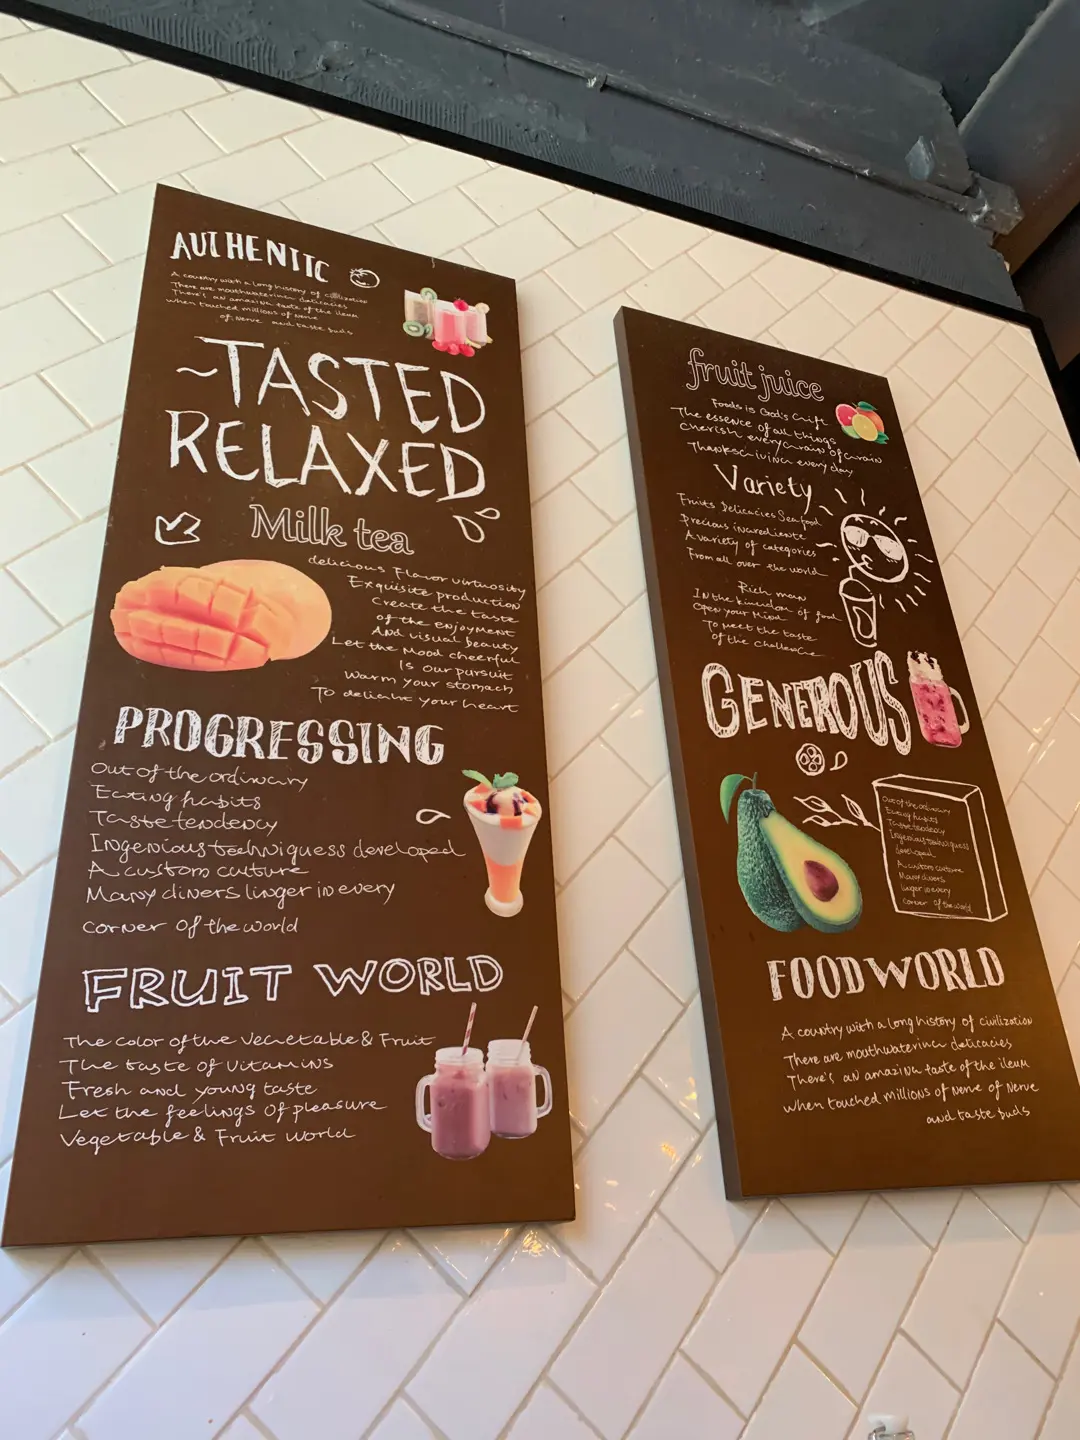 AUTHENTIC
A country with a long history of civilization
There are mouthwaterinc delicacies
There's an amazinc taste of the ileum
when touched millions of Nerve
of Nerve and taste buds
~TASTED
RELAXED
Milk tea
delicious Flavor virtuosity
Exquisite production
Create the taste
of the enjoyment
And visual beauty
Let the Mood cheerful
Is our pursuit
Warm your stomach
To delicht your heart
PROGRESSING
Out of the ordinary
Eating habits
Taste tendency
Ingenious techniquess developed
A custom culture
Many diners linger in every
corner of the world
FRUIT WORLD
The color of the Vecetable & Fruit
The taste of Vitamins
Fresh and young taste
Let the feelings Of pleasure
Vegetable & Fruit World
fruit juice
Foods is God's Gift
The essence of all things
Cherish every crain of Grain
Thankscivinc every day
Variety
Fruits Delicacies Seafood
Precious incredients
A variety of categories
From all over the world
Rich man
In the kincdom of food
Open your Mind
To meet the taste
of the challence
GENEROUS
Out of the ordinary
Eating habits
Taste tendency
Ingenious techniquess
developed
A custom culture
Many diners
linger in every
corner of the world
FOOD WORLD
A country with a long history of civilization
There are mouthwaterinc delicacies
There's an amazinc taste of the ileum
when touched millions of Nerve of Nerve
and taste buds